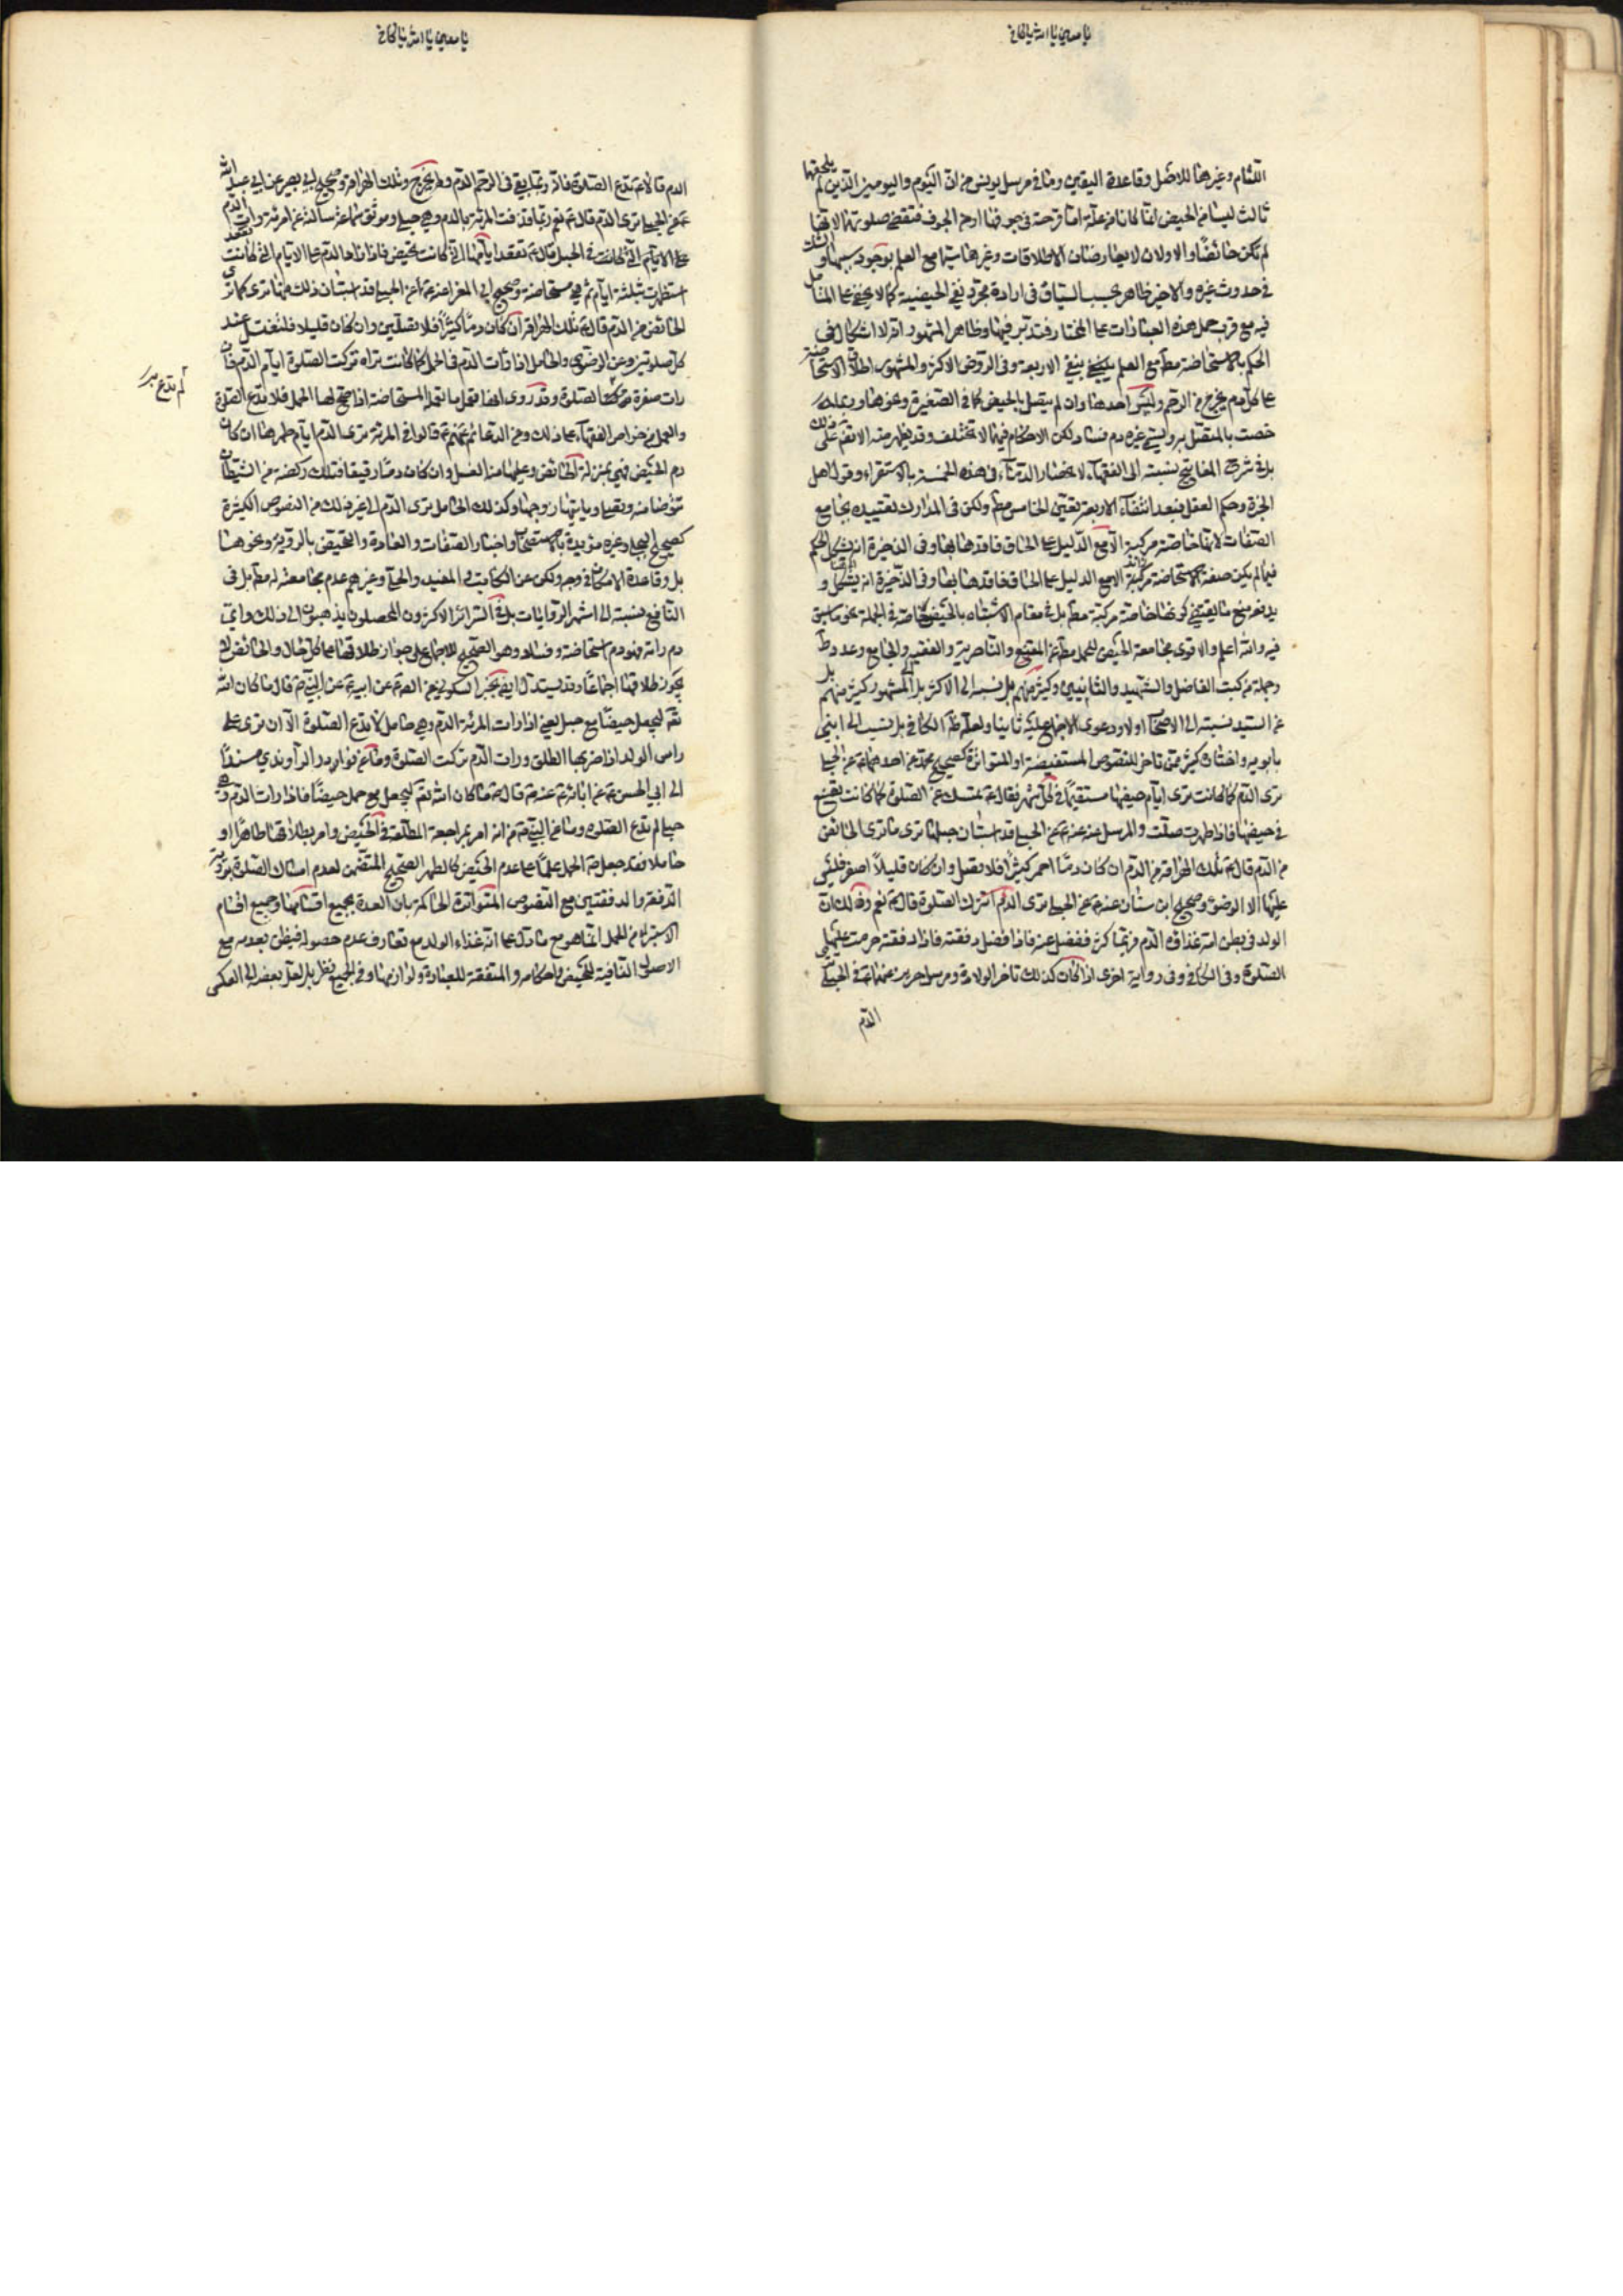 يا معين يا الله يا كافي
اللثام وغيرها للاصل وقاعدة اليقين وما في مرسل يونس من ان اليوم واليومين الذين لم يلحقهما
ثالث ليسا من الحيض انما كانا من علة اما قرحة في جوفها او من الجوف فتقضي صلوتهما لانها
لم تكن حائضا والاولان لا يعارضان الاطلاقات وغيرها سيما مع العلم بوجود سببهما والشك
في حدوث غيره والاخير ظاهر بحسب السياق في ارادة مجرد نفي الحيضية كما لا يخفى على المتأمل
فيه مع قرب حمل هذه العبارات على المختار فتدبر فيها وظاهر المشهور انه لا اشكال في
الحكم بالاستحاضة مع العلم بنفي الاربعة وفي الروض الاكثر والمشهور اطلاق الاستحاضة
على كل دم يخرج من الرحم وليس احدها وان لم يتصل بالحيض كما في الصغيرة ونحوها وربما
خصت بالمتصل به ويسمى غيره دم فساد لكن الاحكام فيهما لا تختلف وقد يظهر منه الاتفاق على ذلك
بل في شرح المفاتيح نسبته الى الفقهاء لانحصار الدماء في هذه الخمسة بالاستقراء وقول اهل
الخبرة وحكم العقل فبعد انتفاء الاربعة يتعين الخامس ولكن في المدارك تقييده بجامع
الصفات لانها خاصة مركبة الا مع الدليل على الحاق فاقدها بها وفي الذخيرة انه يشكل الحكم
فيما لم يكن صفة الاستحاضة مركبة الا مع الدليل على الحاق فاقدها بها وفي الذخيرة انه يشكل و
يدفعه منع ما يقتضي كونها خاصة مركبة بل في مقام الاشتباه بالحيض خاصة في الجملة نحو ما سبق
فيه والله اعلم والاقوى مجامعة الحيض للحمل عن المقنع والناصرية والفقيه والجامع وعد و
وجملة من كتب الفاضل والشهيد والثانيين وكثير منهم بل نسب الى الاكثر بل المشهور كثير منهم بل
عن السيد نسبته الى الاصحاب اولا ودعوى الاجماع عليه ثانيا ولعله ظاهر الكافي بل نسب الى ابني
بابويه واختاره كثير ممن تاخر للنصوص المستفيضة او المتواترة كصحيح محمد عن احدهما عن الحبلى
ترى الدم كما كانت ترى ايام حيضها مستقيما في كل شهر فقال تمسك عن الصلوة كما كانت تصنع
في حيضها فاذا طهرت صلت والمرسل عنه عن الحبلى قد استبان حبلها ترى ما ترى الحائض
من الدم قال تلك الهراقة من الدم ان كان دما احمر كثيرا فلا تصل وان كان قليلا اصفر فليس
عليها الا الوضوء وصحيح ابن سنان عنه عن الحبلى ترى الدم اتترك الصلوة قال نعم وذلك ان
الولد في بطن امه غذاؤه الدم فربما كثر ففضل عنه فاذا فضل دفقته فاذا دفقته حرمت عليها
الصلوة وفي الكافي وفي رواية اخرى اذا كان كذلك تاخر الولادة ومرسل حريز عنهما في الحبلى
الدم
يا معين يا الله يا كافي
الدم قال لا تدع الصلوة فانه ربما يبقى في الرحم الدم ولم يخرج وتلك الهراقة وصحيح ابي بصير عن ابي عبد الله
عن الحبلى ترى الدم قال نعم ربما قذفت المرئة بالدم وهي حبلى وموثق سماعة سالته عن امرئة رات الدم
في الحبل قال تقعد ايامها التي كانت تحيض فاذا زاد الدم على الايام التي كانت تقعد
استظهرت بثلثة ايام ثم هي مستحاضة وصحيح ابي المغرا عنه عن الحبلى قد استبان ذلك منها ترى كما ترى
الحائض من الدم قال تلك الهراقة ان كان دما كثيرا فلا تصلين وان كان قليلا فلتغتسل عند
كل صلوتين وعن الرضوي والحامل اذا رات الدم في الحمل كما كانت تراه تركت الصلوة ايام الدم فان
رات صفرة لم تدع الصلوة وقد روي انها تعمل ما تعمله المستحاضة اذا صح لها الحمل فلا تدع الصلوة
والعمل من خواص الفقهاء على ذلك وعن الدعائم عنهم قالوا في المرئة ترى الدم ايام حملها ان كان
دم الحيض فهي بمنزلة الحائض وعليها منه الغسل وان كان دما رقيقا فتلك ركضة من الشيطان
تتوضا منه وتصلي وياتيها زوجها وكذلك الحامل ترى الدم الى غير ذلك من النصوص الكثيرة
وغيره مؤيدة بالاستصحاب واخبار الصفات والعادة والتحيض بالرؤية ونحوها
بل وقاعدة الامكان في وجه ولكن عن الكاتب والمفيد والحلي وغيرهم عدم مجامعته له بل في
النافع نسبته الى اشهر الروايات بل في السرائر الاكثرون المحصلون يذهبون الى ذلك وانه
دم راته فهو دم استحاضة وفساد وهو الصحيح للاجماع على جواز طلاقها على كل حال والحائض لا
يجوز طلاقها اجماعا وقد يستدل ايضا بخبر السكوني عن الصادق عن ابيه عن النبي قال ما كان الله
ليجعل حيضا مع حبل يعني اذا رات المرئة الدم وهي حامل لا تدع الصلوة الا ان ترى على
راس الولد اذا ضربها الطلق ورات الدم تركت الصلوة وما عن نوادر الراوندي مسندا
الى ابي الحسن عن ابائه عنه قال ما كان الله ليجعل مع حمل حيضا فاذا رات الدم وهي
حبلى لم تدع الصلوة وما عن النبي من انه امر بمراجعة المطلقة في الحيض وامر بطلاقها طاهرا او
حاملا فقد جعل الحمل علما على عدم الحيض كالطهر الصحيح المتضمن لعدم امساك الصلوة برؤية
الدفقة والدفقتين مع النصوص المتواترة الحاكمة بان العدة بجميع اقسامها وجميع اقسام
الاستبراء من الحمل انما هو مع ما دل على انه غذاء الولد مع تعارف عدم حصوله فيظن بعدمه مع
الاصول النافية للحيض واحكامه والمتفقة للعبادة ولوازمها وفي الجميع نظر بل لعل بعضه الى العكس
لم تدع